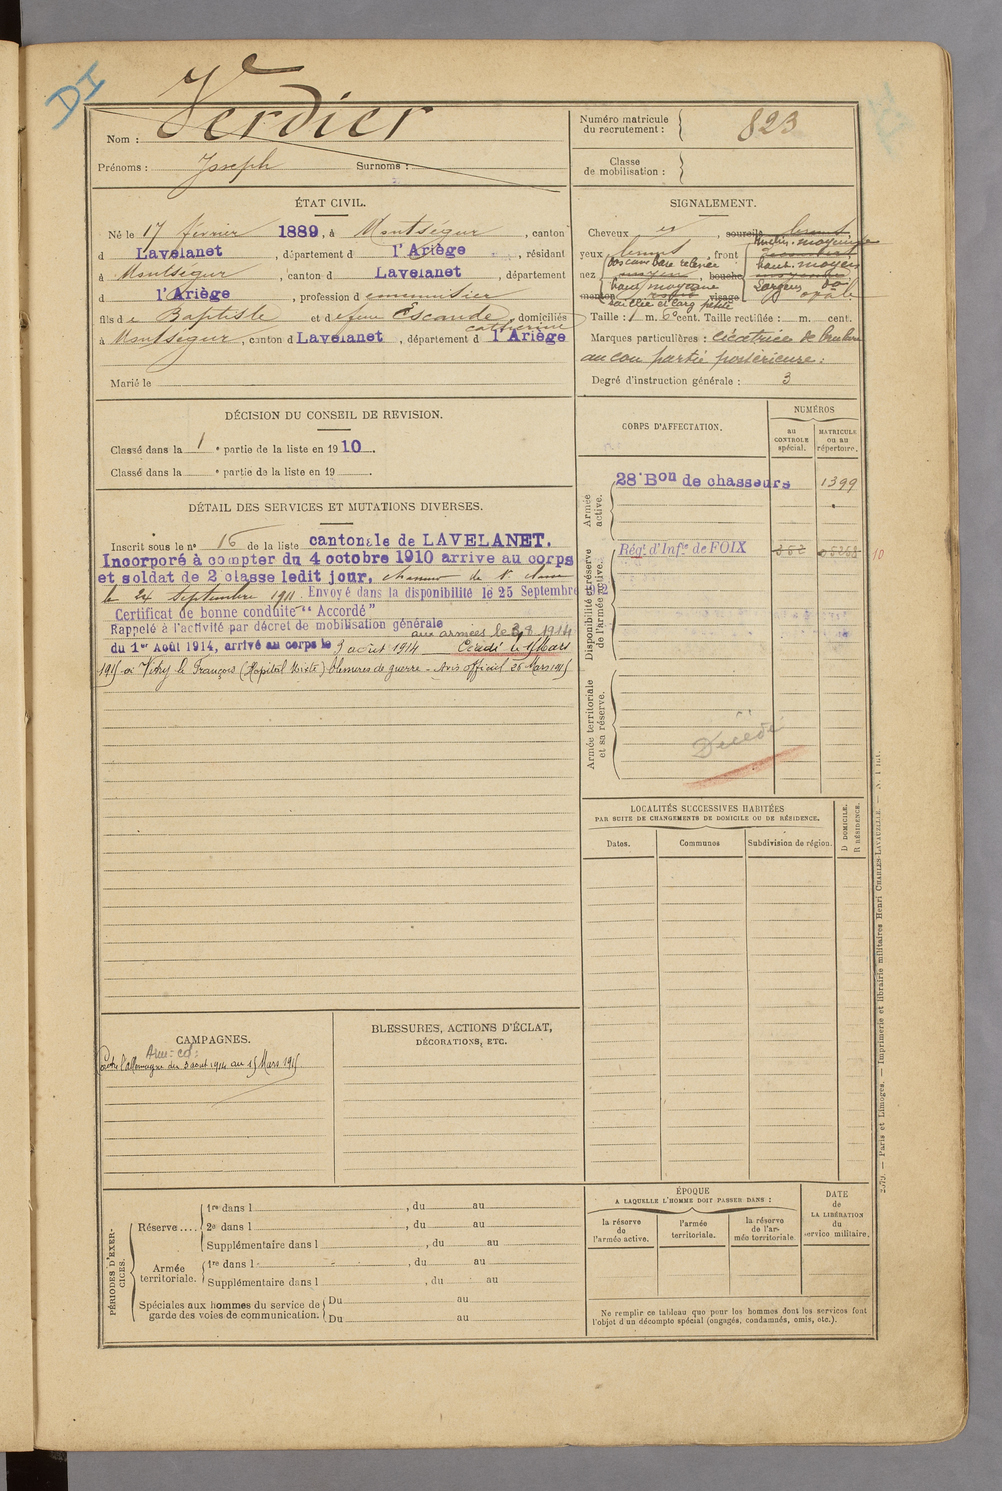 DI
Nom : Verdier
Prénoms : Joseph Surnoms :
Numéro matricule du recrutement : 823
Classe de mobilisation :
ÉTAT CIVIL.
Né le 17 février 1889, à Montségur, canton
d Lavelanet, département d l'Ariège, résidant
à Montségur, canton d Lavelanet, département
d l'Ariège, profession d
fils de Baptiste et de feue Escande catherine, domiciliés
à Montségur, canton d Lavelanet, département d l'Ariège
Marié le
SIGNALEMENT.
Cheveux , sourcils
yeux front
nez bouche
haut. moyenne
menton visage
Taille : 1 m. 6 cent. Taille rectifiée : m. cent.
Marques particulières : cicatrice de
au cou partie postérieure.
Degré d'instruction générale : 3
DÉCISION DU CONSEIL DE REVISION.
Classé dans la 1e partie de la liste en 1910.
Classé dans la e partie de la liste en 19 .
DÉTAIL DES SERVICES ET MUTATIONS DIVERSES.
Inscrit sous le no 16 de la liste cantonale de LAVELANET.
Incorporé à compter du 4 octobre 1910 arrive au corps
et soldat de 2 classe ledit jour,
le 24 Septembre 1911. Envoyé dans la disponibilité le 25 Septembre 1912
Certificat de bonne conduite "Accordé"
Rappelé à l'activité par décret de mobilisation générale aux armées le 3 8 1914
du 1er Août 1914, arrivé au corps le 3 août 1914 Décédé le 15 Mars
1915 à Vitry le François (Hopital Mixte) blessures de guerre - Avis officiel 26 Mars 1915
CORPS D'AFFECTATION.
NUMÉROS
au CONTROLE spécial.
MATRICULE ou au répertoire.
Armée active.
28e Bon de chasseurs 1399
Disponibilité et réserve de l'armée active.
Régt d'Infie de FOIX
Armée territoriale et sa réserve.
Décédé
LOCALITÉS SUCCESSIVES HABITÉES
PAR SUITE DE CHANGEMENTS DE DOMICILE OU DE RÉSIDENCE.
Dates. Communes Subdivision de région.
D DOMICILE.
R RÉSIDENCE.
CAMPAGNES.
Contre l'Allemagne du 3 aout 1914 au 15 Mars 1915
BLESSURES, ACTIONS D'ÉCLAT,
DÉCORATIONS, ETC.
PÉRIODES D'EXERCICES.
Réserve .... 1re dans l , du au
2e dans l , du au
Supplémentaire dans l , du au
Armée territoriale. 1re dans l , du au
Supplémentaire dans l , du au
Spéciales aux hommes du service de garde des voies de communication. Du au
Du au
ÉPOQUE
A LAQUELLE L'HOMME DOIT PASSER DANS :
la réserve de l'armée active.
l'armée territoriale.
la réserve de l'armée territoriale.
DATE de LA LIBÉRATION du service militaire.
Ne remplir ce tableau que pour les hommes dont les services font
l'objet d'un décompte spécial (engagés, condamnés, omis, etc.).
Paris et Limoges. — Imprimerie et librairie militaires Henri CHARLES-LAVAUZELLE.